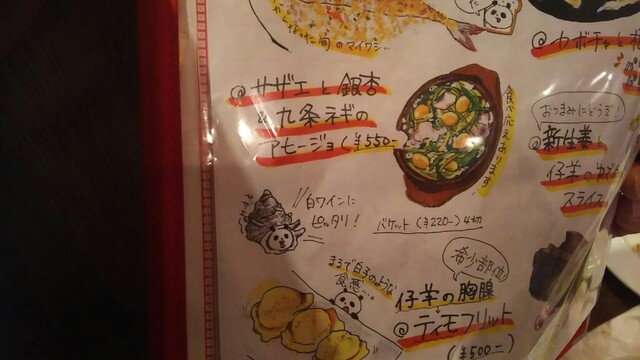 旬のマイワシ…
@サザエと銀杏
&九条ネギの
アヒージョ(¥550-
食べ応えあります!
白ワインに
ピッタリ!
バケット(¥220-)4切
まるで白子のような
食感…。
希少部位!
仔羊の胸腺
@ティモフリット
(¥500-)
@カボチャと
おつまみにどうぞ!
@新生姜
仔羊の
スライス